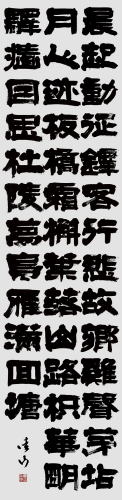 晨起動征鐸客行悲故鄉雞聲茅坫
月人迹板橋霜槲葉落山路枳華明
驛牆因思杜陵夢鳧雁滿回塘